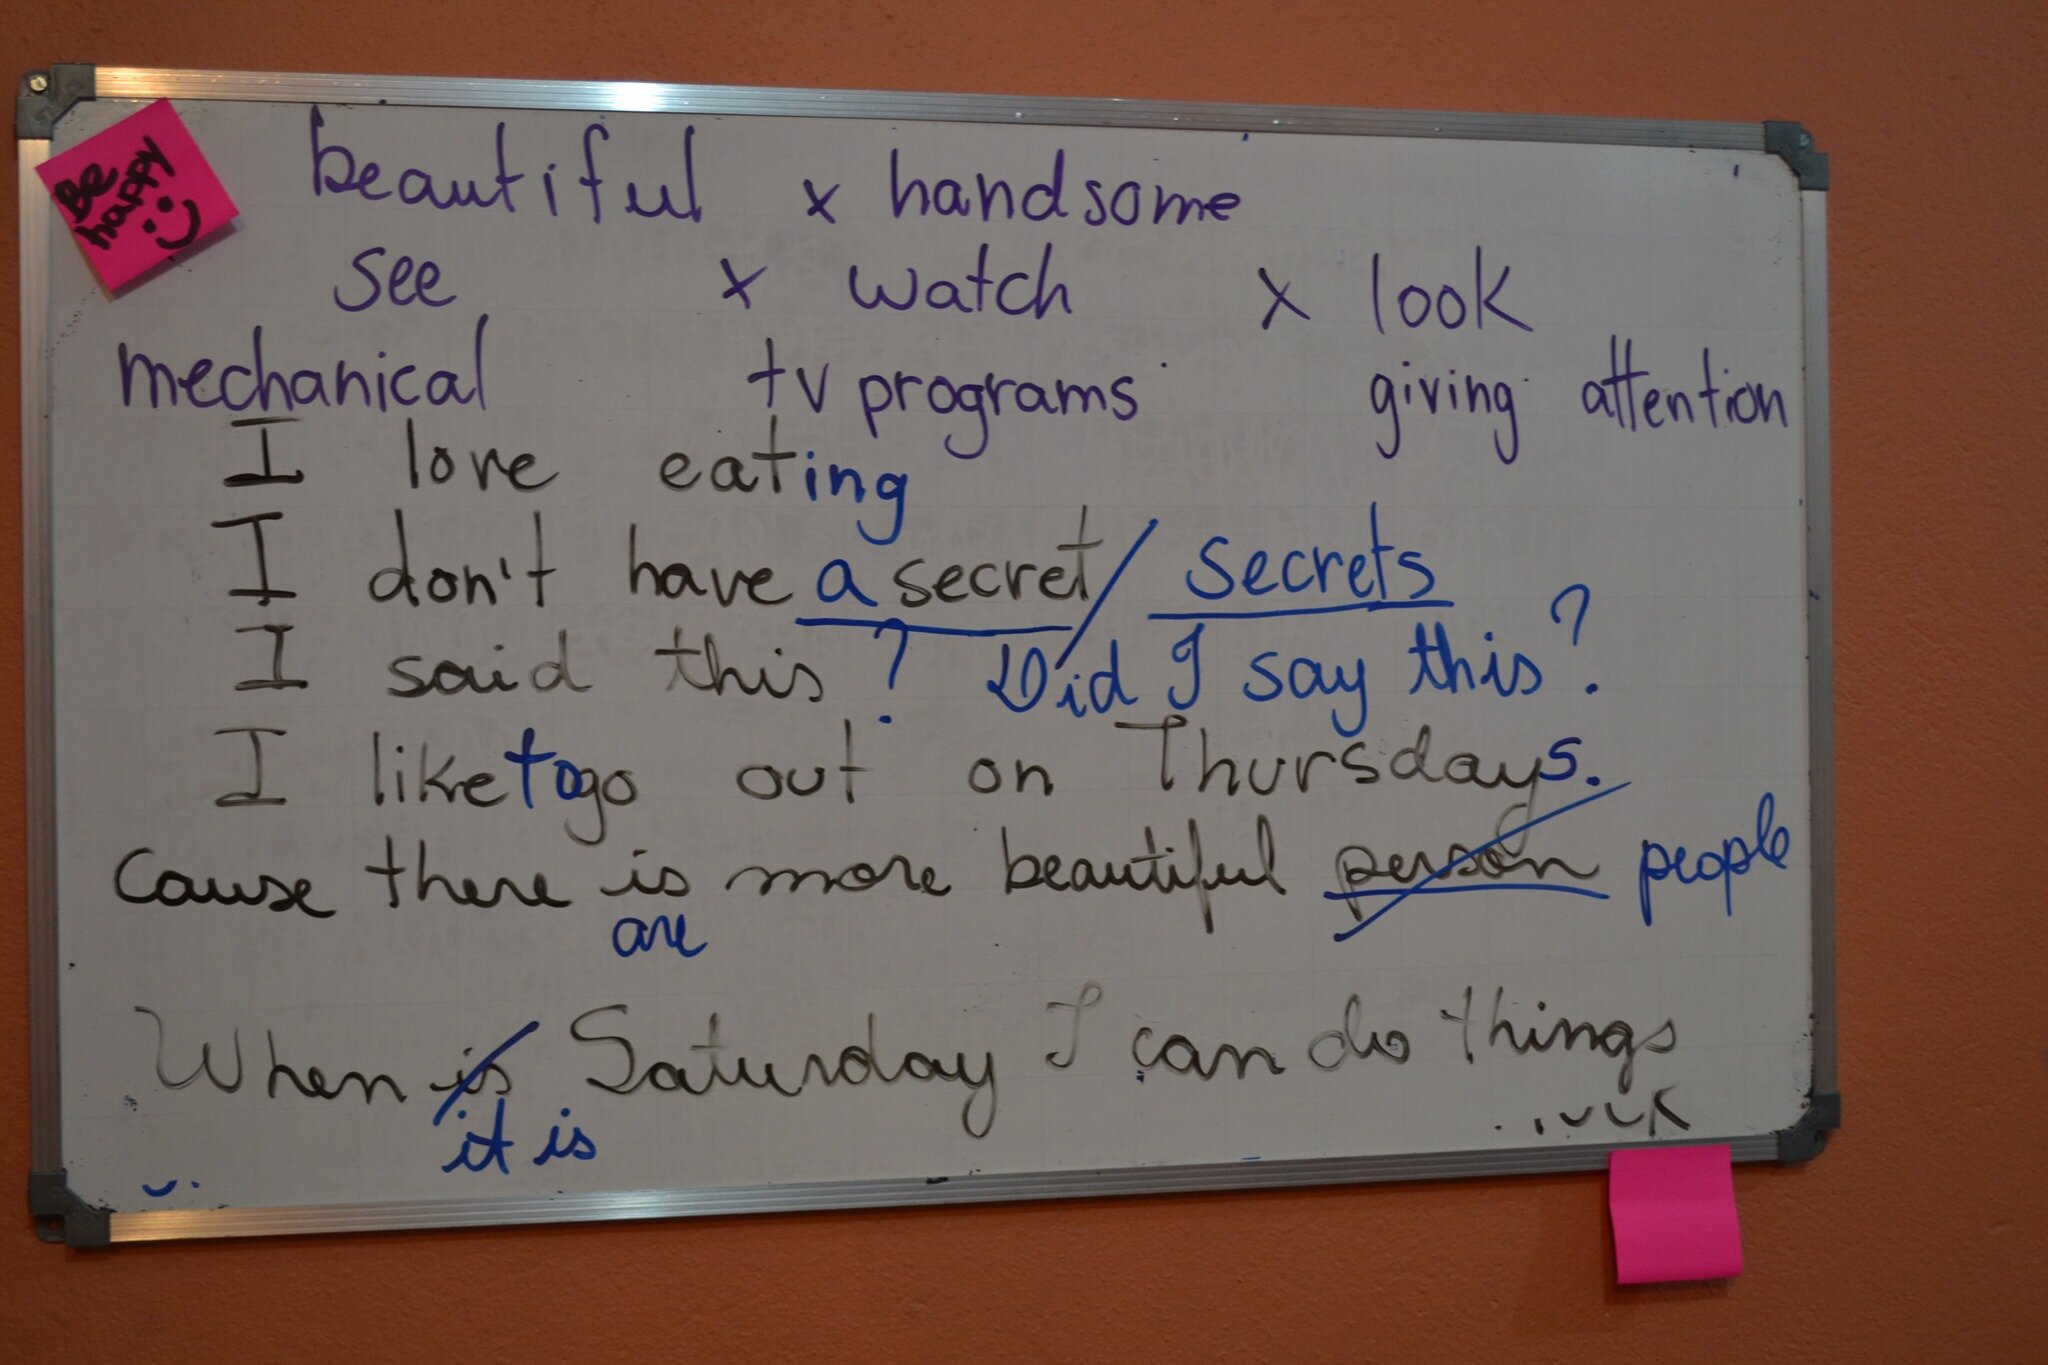 Be
happy
beautiful x handsome
see x watch x look
mechanical tv programs giving attention
I love eating
I don't have a secret / secrets
I said this? Did I say this?
I like to go out on Thursdays.
Cause there is more beautiful person people
are
When is Saturday I can do things
it is